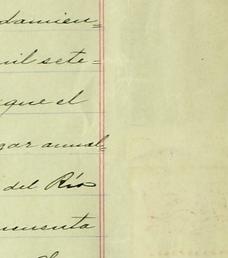 damien=
mil sete=
que el
gar anual=
del Rio
cuenta